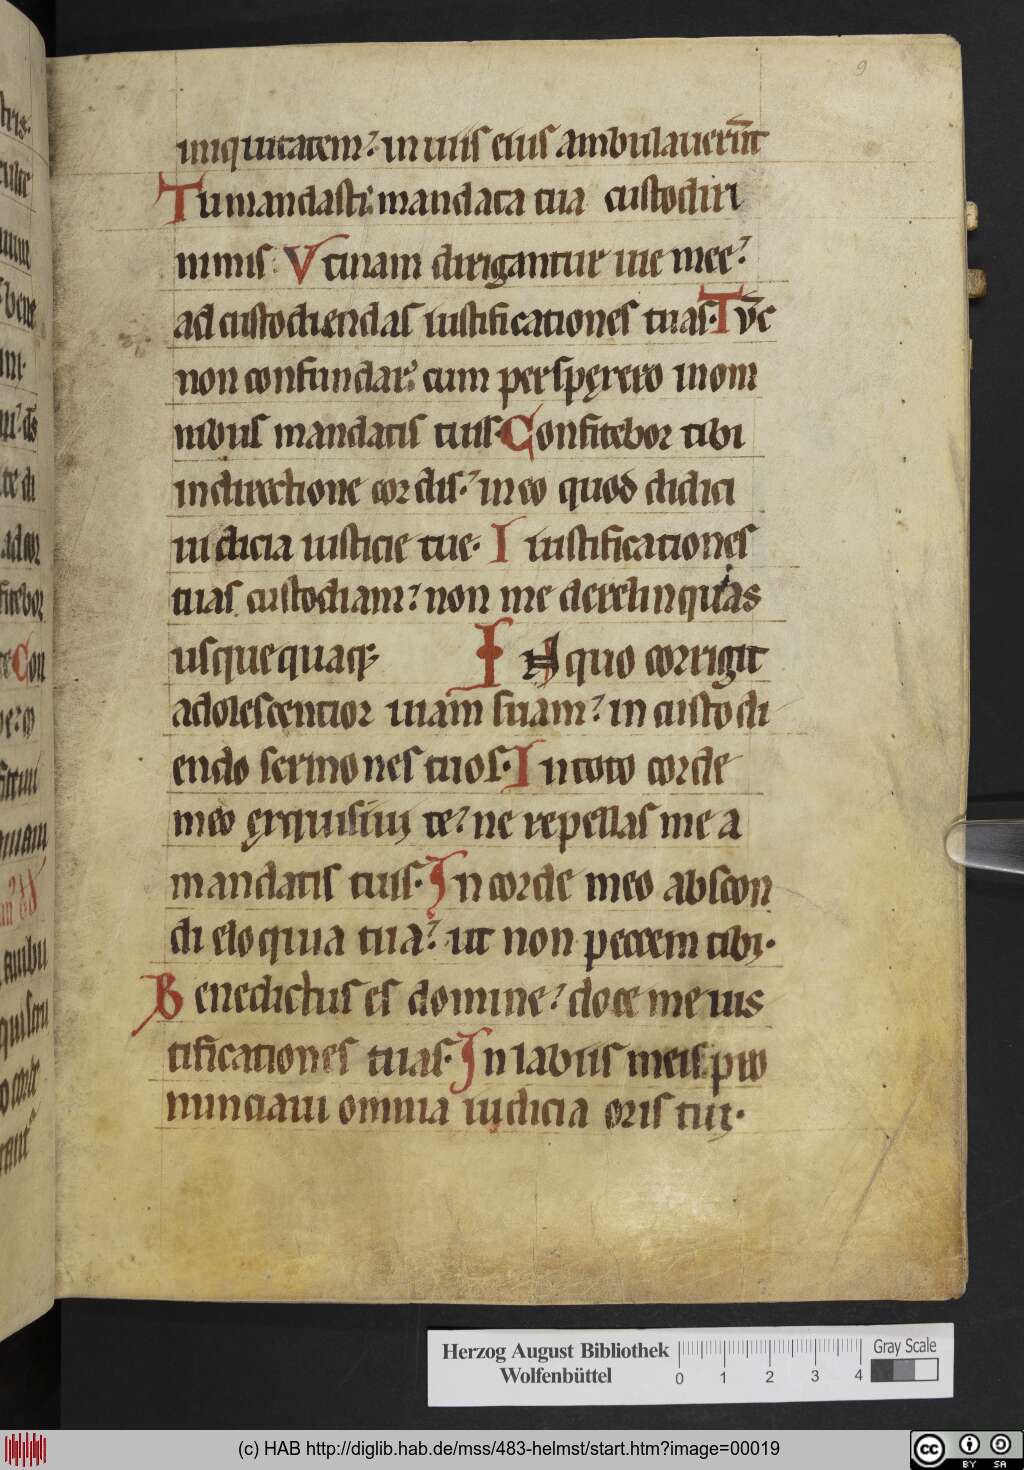 9
iniquitatem? in uiis eius ambulauerūt
Tu mandasti: mandata tua custodiri
nimis. Vtinam dirigantur uie mee?
ad custodiendas iustificationes tuas. Tūc
non confundar: cum perspęxero in om
nibus mandatis tuis. Confitebor tibi
in directione cordis? in eo quod didici
iudicia iusticie tue. I iustificationes
tuas custodiam? non me derelinquas
usquequaq;
In quo corrigit
adolescentior uiam suam? in custodi
endo sermones tuos. In toto corde
meo ęxquisiui te? ne repellas me a
mandatis tuis. In corde meo abscon
di eloquia tua? ut non peccem tibi.
Benedictus es domine? doce me ius
tificationes tuas. In labiis meis pro
nunciaui omnia iudicia oris tui.
Herzog August Bibliothek
Wolfenbüttel
0 1 2 3 4
Gray Scale
(c) HAB http://diglib.hab.de/mss/483-helmst/start.htm?image=00019
cc BY SA